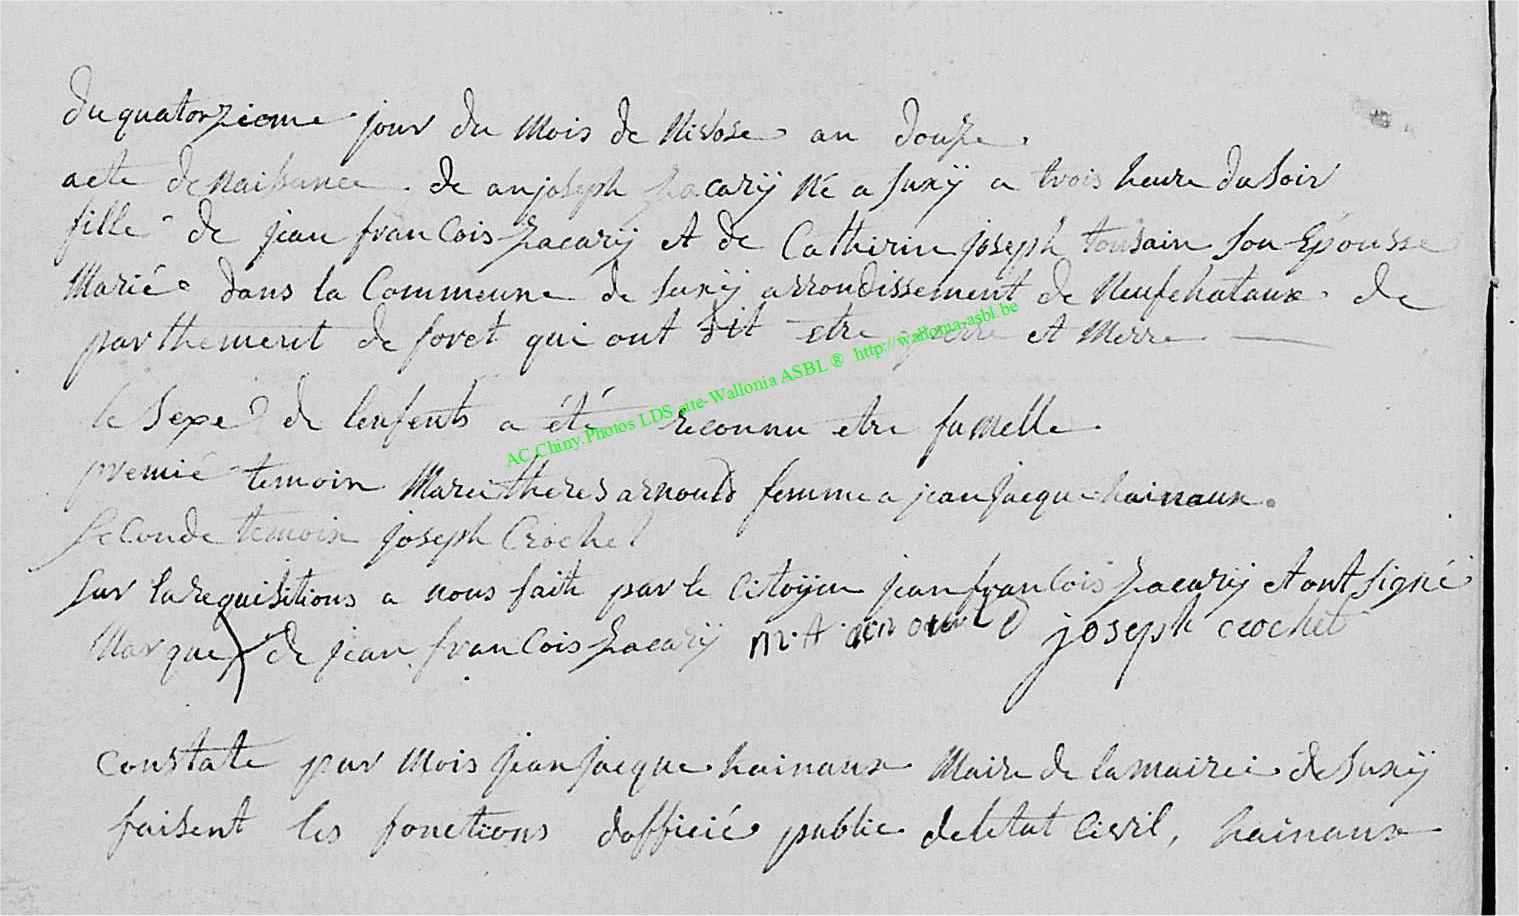 Du quatorzieme jour du Mois de Nivose an douze.
acte de Naissance. de anjoseph zacarÿ Né a suxÿ a trois heure du soir
fille de jean francois zacarÿ et de Cathirin joseph tousain son Épousse
Marié dans la Commeune de suxÿ arrondissement de Neufchataux de
parthement de foret qui ont dit etre pere et Merre
le sexe de lenfents a été reconnu etre fumelle
premié temoin Marie theres arnould femme a jean jacque hainaux.
seconde temoin joseph Crochet
sur la requisitions a nous faite par le Citoÿen jean francois zacarÿ et ont signé
Marque de jean francois zacarÿ m.t. arnould joseph crochet
constate par Mois jean jacque hainaux Maire de la mairei de suxÿ
faisent les fonctions dofficié public deletat Civil, hainaux
AC.Chiny.Photos LDS site-Wallonia ASBL ® http://wallonia-asbl.be